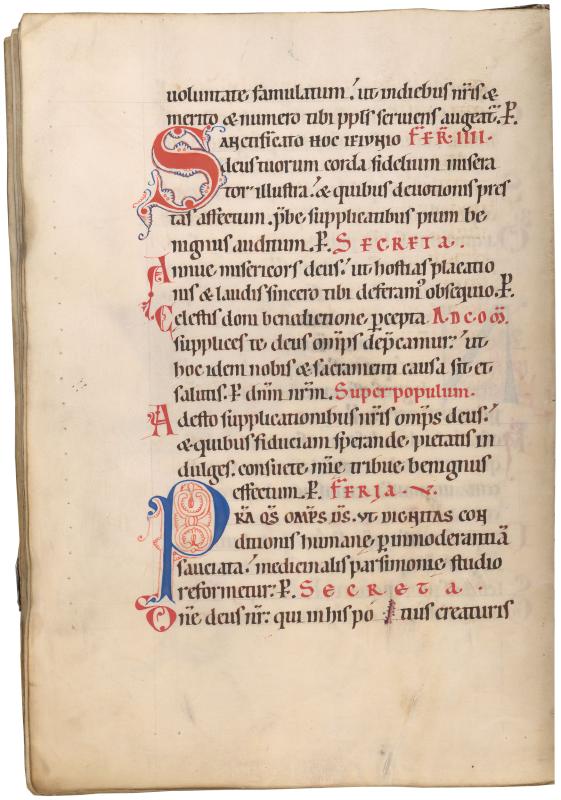 voluntate famulatum. ut in diebus nr̄is &
merito & numero tibi pplś serviens augeat̄. P̱.
SANCTIFICATO HOC IEIUNIO FER̄. IIII.
deus tuorum corda fidelium misera
tor illustra. & quibus devotionis pres
tas affectum. p̄be supplicatibus pium be
nignus auditum. P̱. SECRETA.
Annue misericors deus. ut hostias placatio
nis & laudis sincero tibi deferam᾽ obsequio. P̱.
Celestis doni benedictione p̱cepta AD CO͞M.
supplices te deus om̄ps dep̄camur. ut
hoc idem nobis & sacramenti causa sit et
salutis. P̱ dn̄m nr̄m. Super populum.
Adesto supplicationibus nr̄is om̄ps deus.
& quibus fiduciam sperande pietatis in
dulges. consuete mīe tribue benignus
effectum. P̱. FERIA. V.
PR̄A QS̄ OMP̄S DS̄. UT DIGNITAS CON
ditionis humane p̱ inmoderantiā
sauciata. medicinalis parsimonie studio
reformetur. P̱. SECRETA.
Dn̄e deus nr̄. qui in his po tius creaturis